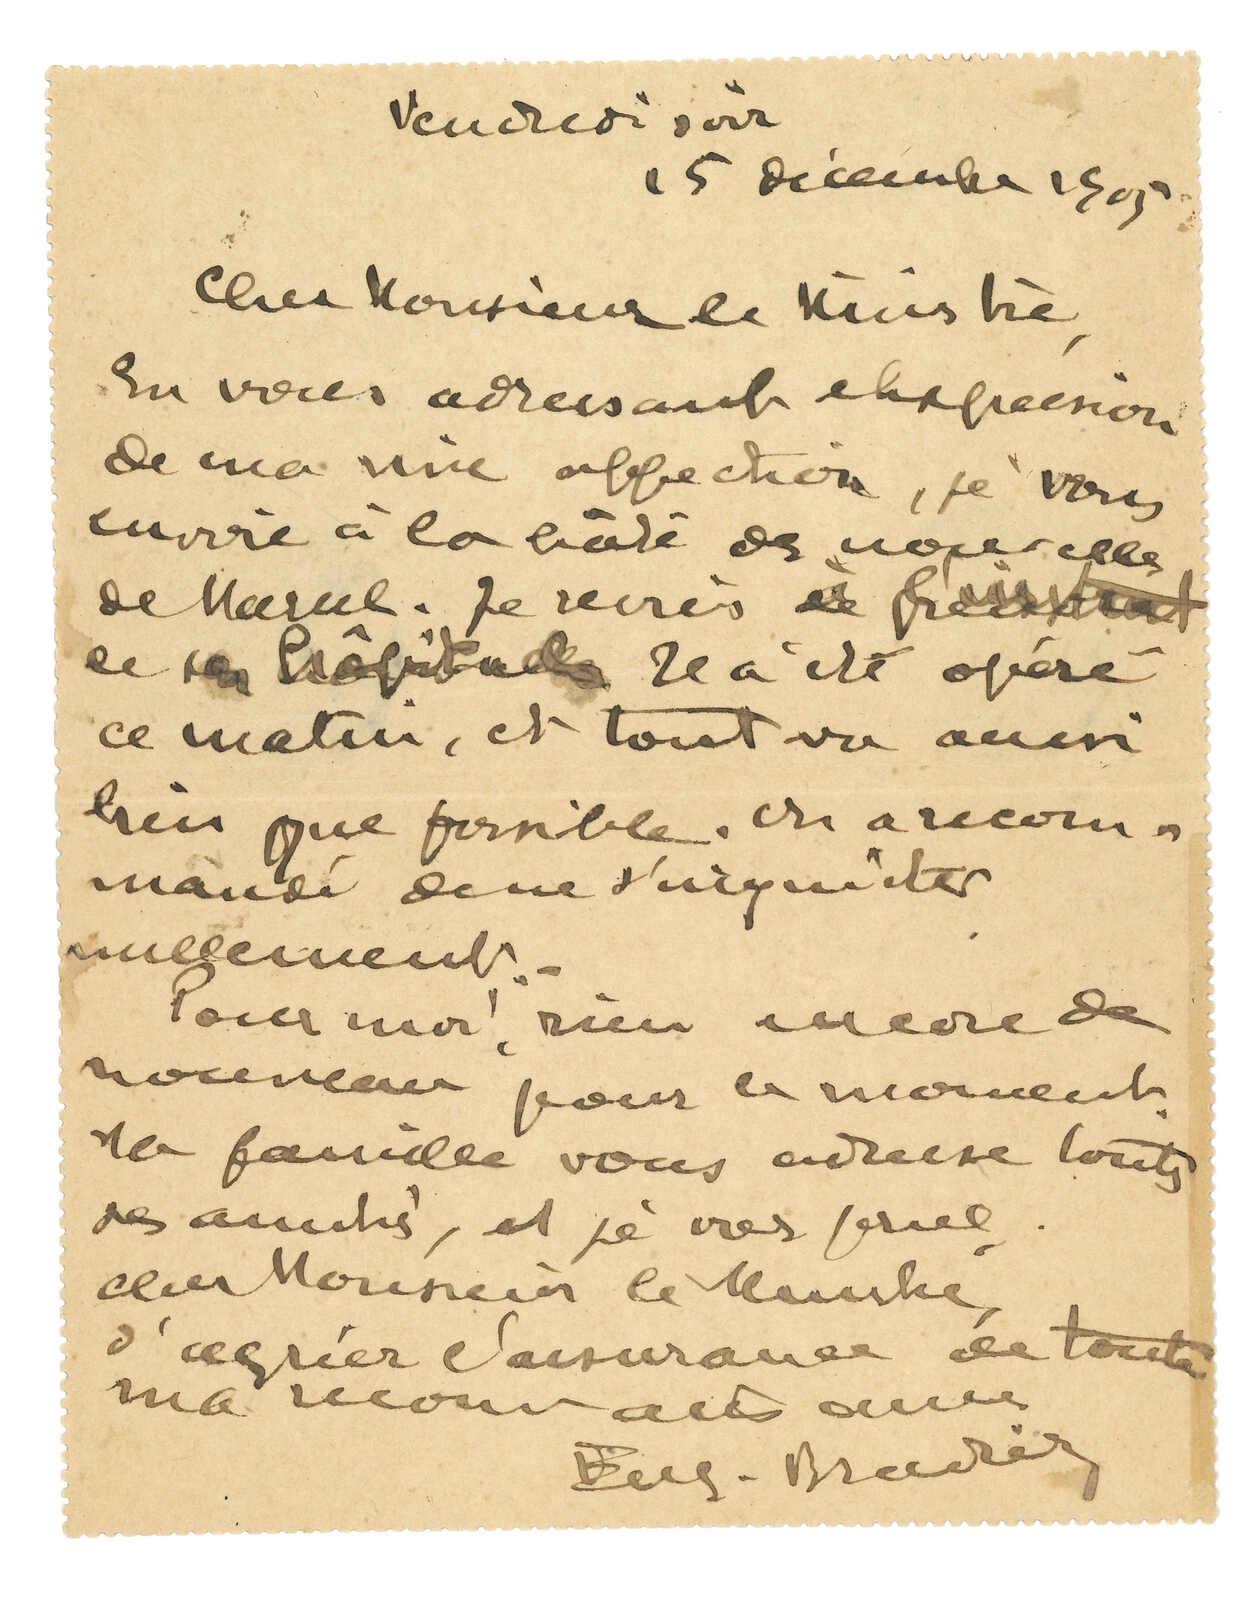 Vendredi soir
15 décembre 1905
Cher Monsieur le Ministre,
En vous adressant l'expression
de ma vive affection, je vous
envoie à la hâte des nouvelles
de Marcel. Je reviens à présent
de l'hôpital. Il a été opéré
ce matin, et tout va aussi
bien que possible. On a recom-
mandé de ne s'inquiéter
nullement.-
Pour moi, rien encore de
nouveau pour le moment.
Ma famille vous adresse toutes
ses amitiés, et je vous prie,
cher Monsieur le Ministre,
d'agréer l'assurance de toute
ma reconnaissance
Eug.